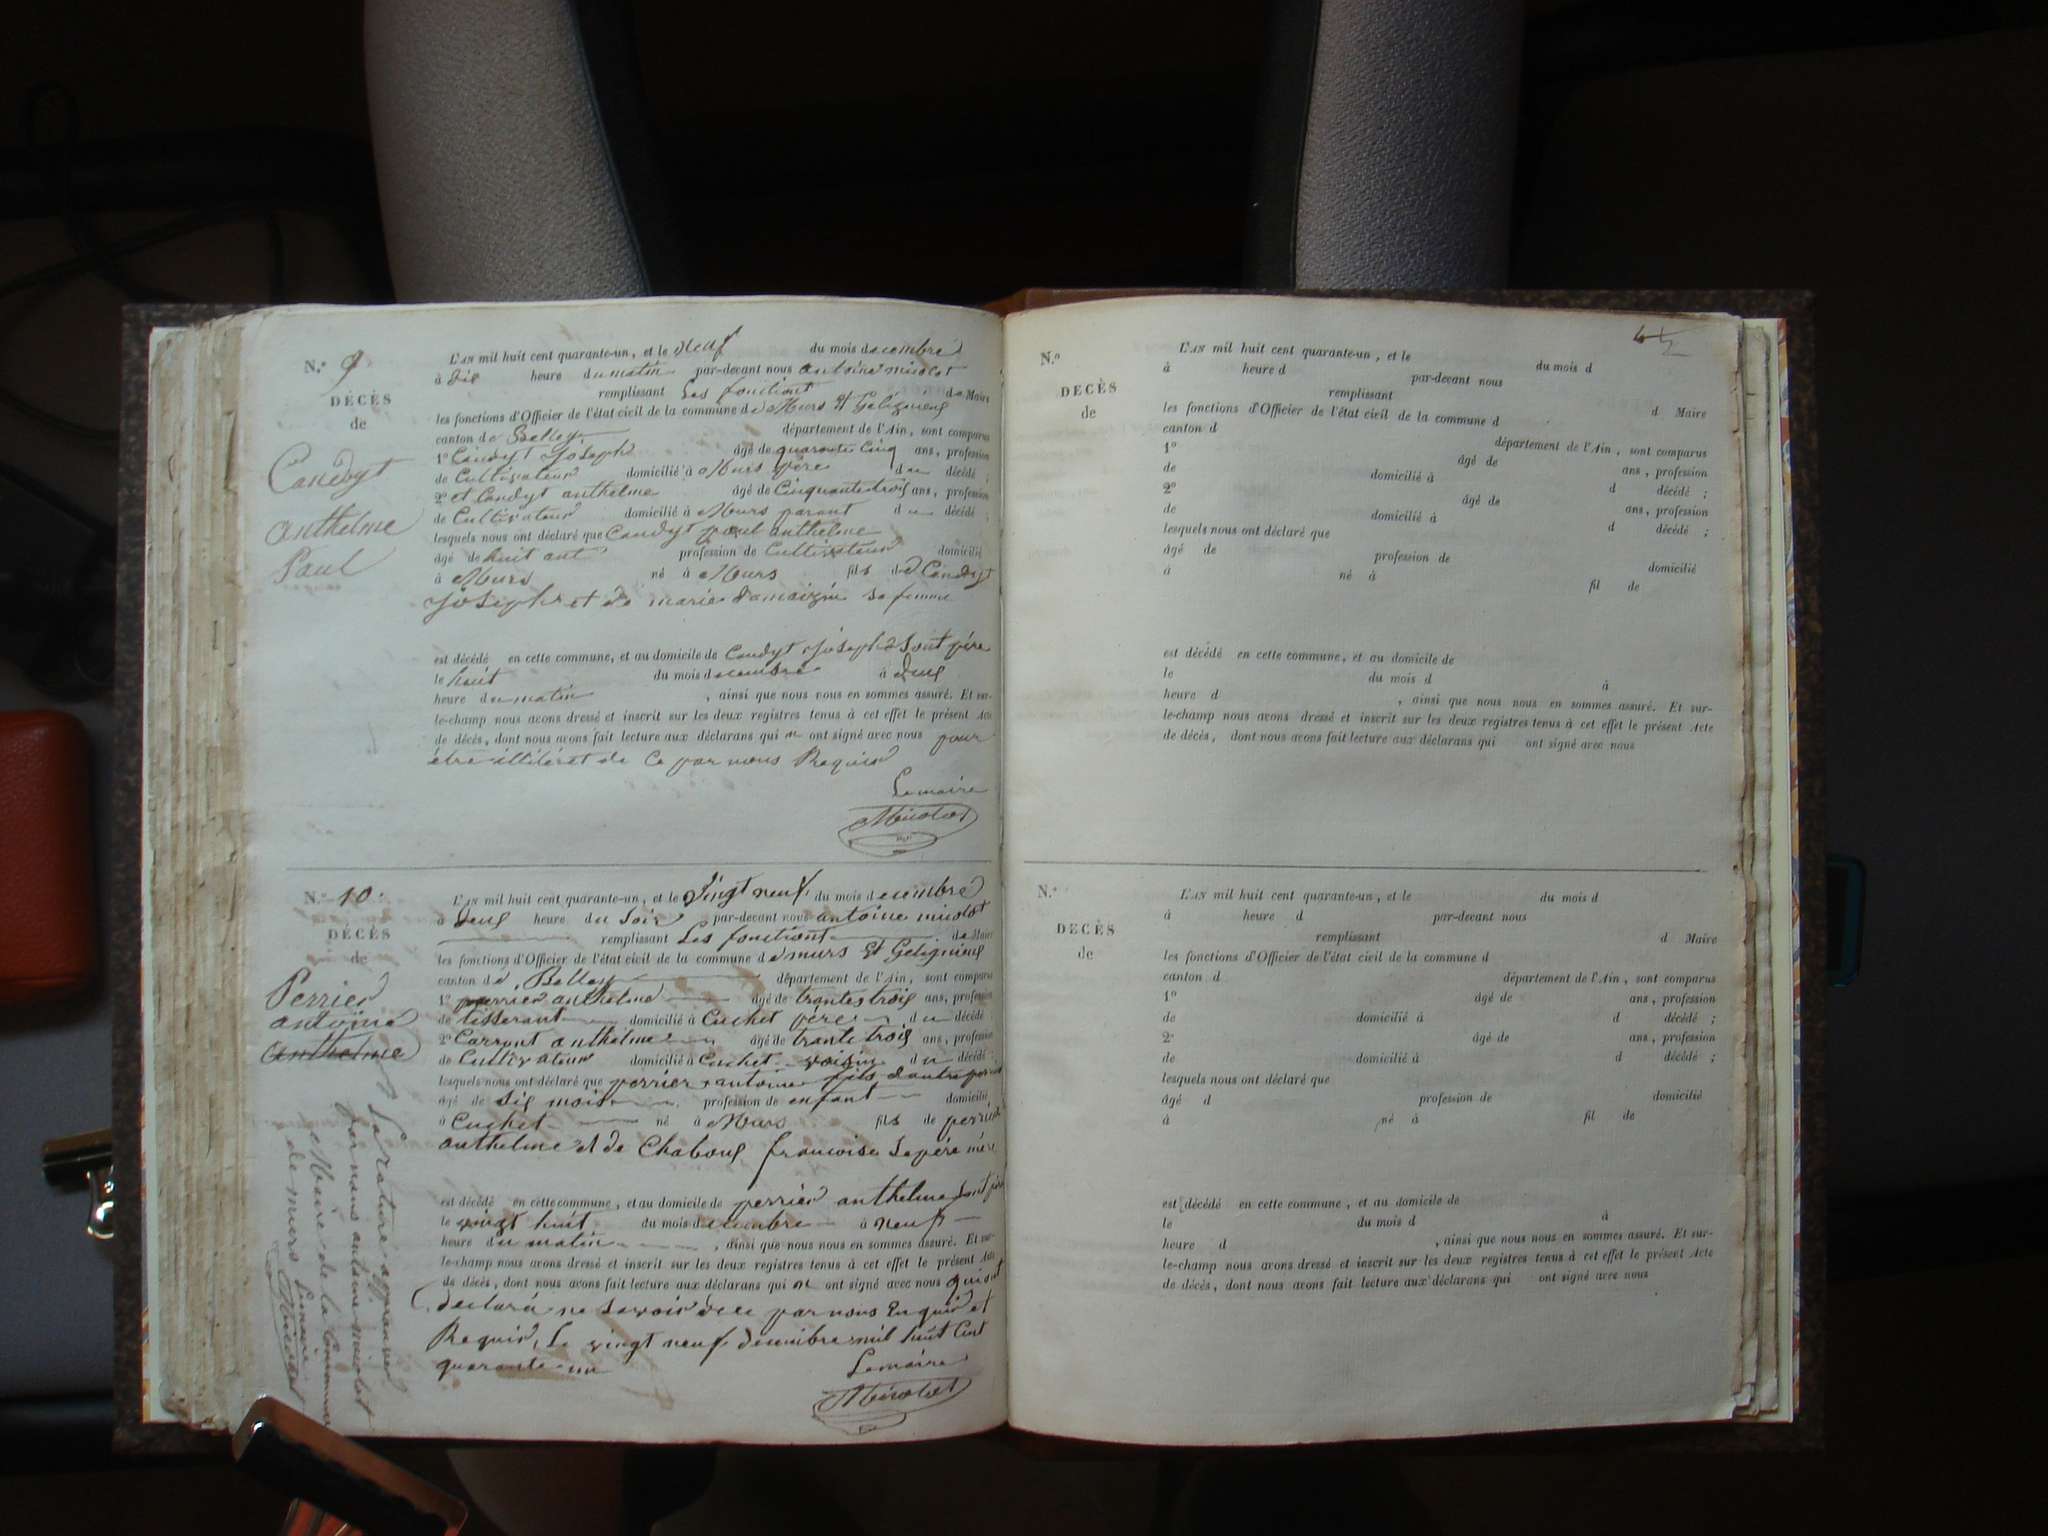 N.° 9
DÉCÈS
de
Candyt
anthelme
Paul
L'AN mil huit cent quarante-un, et le neuf du mois decembre
à dix heure du matin par-devant nous antoine micolot
remplissant Les fonctiont de Maire
les fonctions d'Officier de l'état civil de la commune de Murs Et Gelignieux
canton de Belley département de l'Ain, sont comparus
1° Candyt Joseph âgé de quarante cinq ans, profession
de Cultivateur domicilié à Murs père du décédé ;
2° et Candyt anthelme âgé de Cinquante trois ans, profession
de Cultivateur domicilié à Murs parant du décédé ;
lesquels nous ont déclaré que Candyt paul anthelme
âgé de huit ant profession de Cultivateur domicilié
à Murs né à Murs fils de Candyt
Joseph et de marie sa femme
est décédé en cette commune, et au domicile de Candyt Joseph Sont père
le huit du mois decembre à deux
heure du matin , ainsi que nous nous en sommes assuré. Et sur-
le-champ nous avons dressé et inscrit sur les deux registres tenus à cet effet le présent Acte
de décès, dont nous avons fait lecture aux déclarans qui n ont signé avec nous pour
être illitéret de Ce par nous Requis
Le maire
Micolot
N.° 10.
DÉCÈS
de
Perrier
antoine
anthelme
La rature approuver
par nous antoine micolot
Maire de la Commune
de murs Le maire
Micolot
L'AN mil huit cent quarante-un, et le vingt neuf du mois decembre
à deux heure du soir par-devant nous antoine micolot
remplissant Les fonctiont de Maire
les fonctions d'Officier de l'état civil de la commune de murs Et Gelignieux
canton de Belley département de l'Ain, sont comparus
1° perrier anthelme âgé de trante trois ans, profession
de tisserant domicilié à Cuchet père du décédé ;
2° Carront anthelme âgé de trante trois ans, profession
de Cultivateur domicilié à Cuchet voisin du décédé ;
lesquels nous ont déclaré que perrier antoine
âgé de six mois profession de enfant domicilié
à Cuchet né à Murs fils de perrier
anthelme et de Chaboux francoise
est décédé en cette commune, et au domicile de perrier anthelme sont père
le vingt huit du mois decembre à neuf
heure du matin , ainsi que nous nous en sommes assuré. Et sur-
le-champ nous avons dressé et inscrit sur les deux registres tenus à cet effet le présent Acte
de décès, dont nous avons fait lecture aux déclarans qui n ont signé avec nous qui ont
declaré ne Savoir de ce par nous Enquis et
Requis, Le vingt neuf decembre mil huit Cent
quarante un
Le maire
Micolot
N.°
DECÈS
de
L'AN mil huit cent quarante-un, et le du mois d
à heure d par-devant nous
remplissant d Maire
les fonctions d'Officier de l'état civil de la commune d
canton d département de l'Ain, sont comparus
1° âgé de ans, profession
de domicilié à d décédé ;
2° âgé de ans, profession
de domicilié à d décédé ;
lesquels nous ont déclaré que
âgé de profession de domicilié
à né à fil de
est décédé en cette commune, et au domicile de
le du mois d à
heure d , ainsi que nous nous en sommes assuré. Et sur-
le-champ nous avons dressé et inscrit sur les deux registres tenus à cet effet le présent Acte
de décès, dont nous avons fait lecture aux déclarans qui ont signé avec nous
N.°
DECÈS
de
L'AN mil huit cent quarante-un, et le du mois d
à heure d par-devant nous
remplissant d Maire
les fonctions d'Officier de l'état civil de la commune d
canton d département de l'Ain, sont comparus
1° âgé de ans, profession
de domicilié à d décédé ;
2° âgé de ans, profession
de domicilié à d décédé ;
lesquels nous ont déclaré que
âgé d profession de domicilié
à né à fil de
est décédé en cette commune, et au domicile de
le du mois d à
heure d , ainsi que nous nous en sommes assuré. Et sur-
le-champ nous avons dressé et inscrit sur les deux registres tenus à cet effet le présent Acte
de décès, dont nous avons fait lecture aux déclarans qui ont signé avec nous